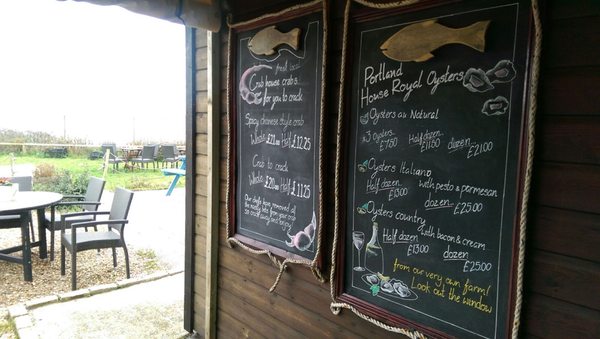 fresh local
Crab house crabs
for you to crack
Spicy chinese style crab
Whole £21.00 Half £12.25
Crab to crack
Whole £20.00 Half £11.25
Our crabs removed of
the nasty bits from your crab
so crack away and enjoy
Portland
House Royal Oysters
Oysters au Natural
3 oysters Half dozen dozen
£7.50 £11.50 £21.00
Oysters Italiano
Half dozen with pesto & parmesan
£13.00 dozen £25.00
Oysters country
with bacon & cream
Half dozen dozen
£13.00 £25.00
from our very own farm!
Look out the window